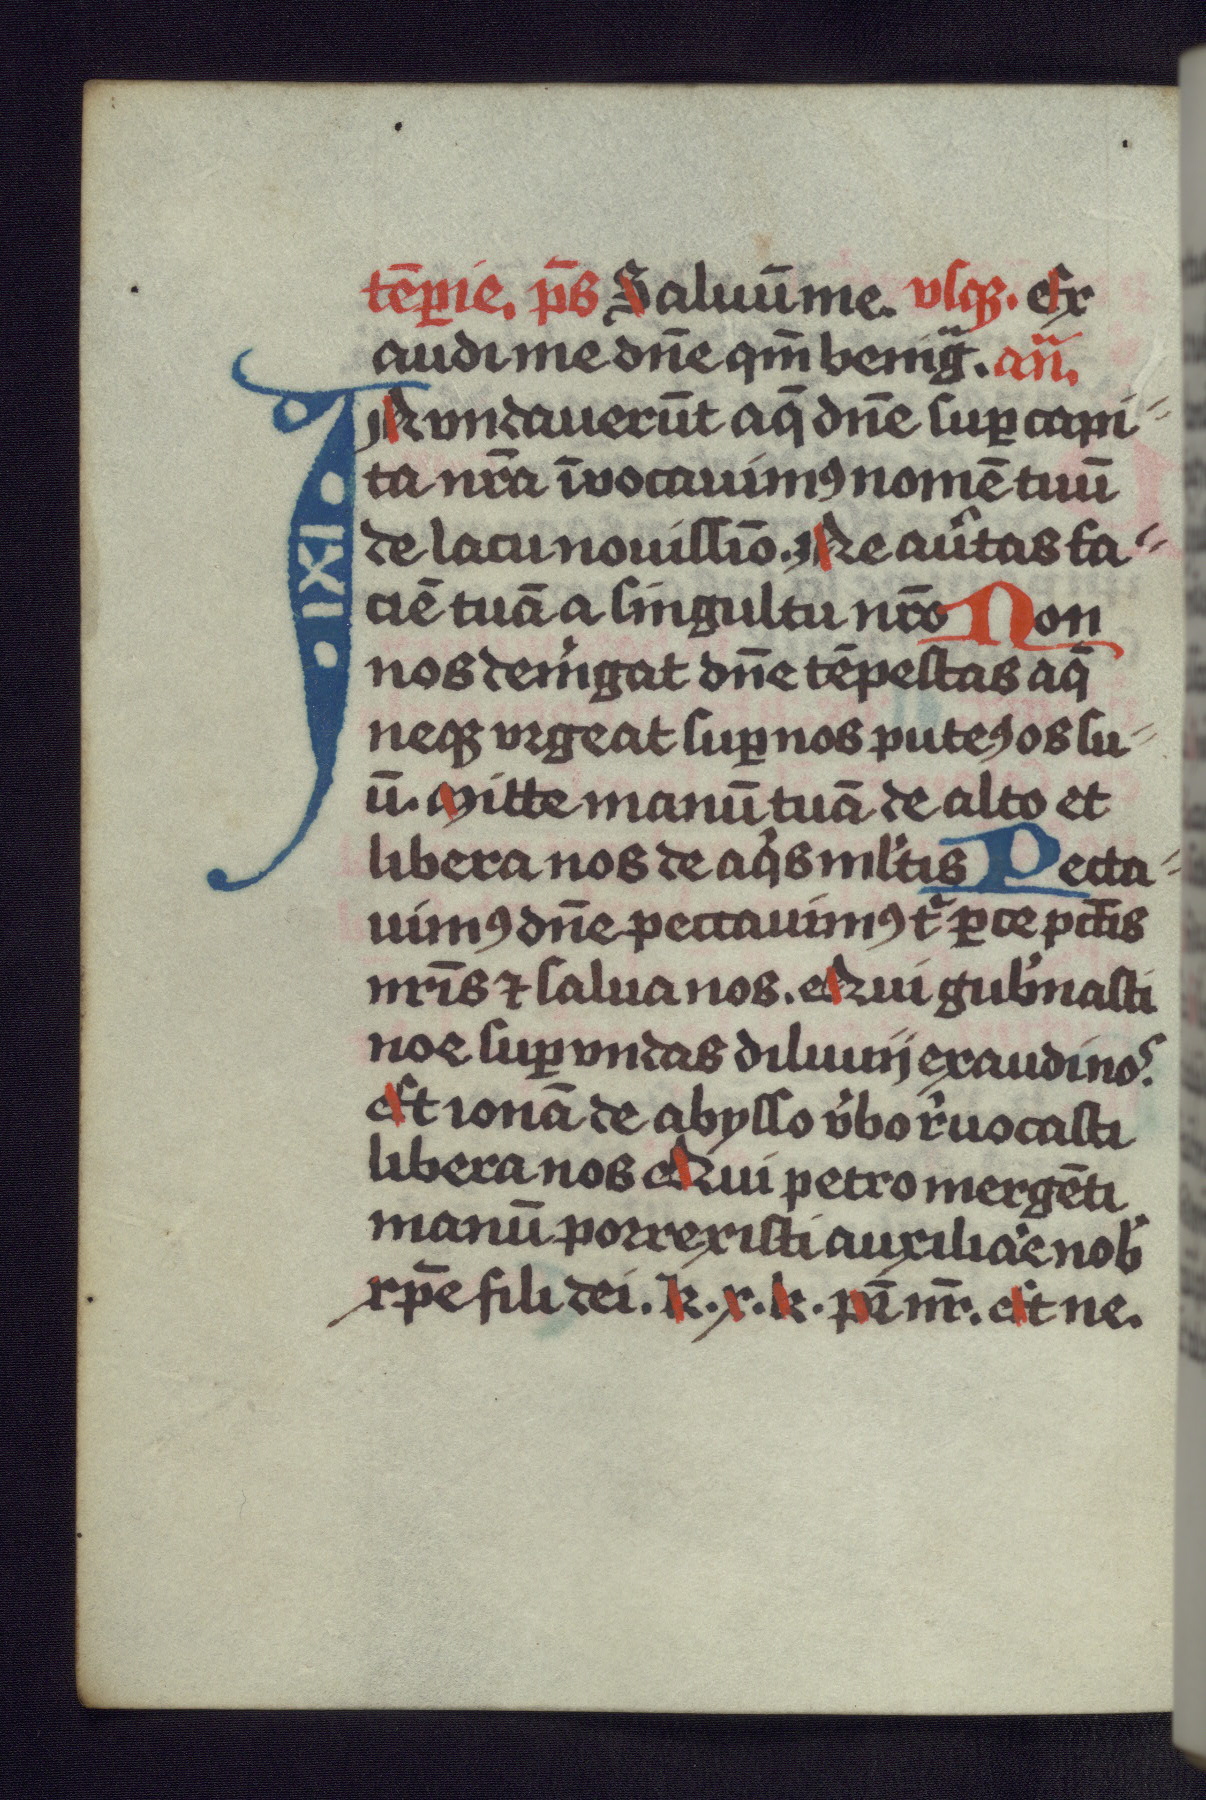 tēpie. ps̄ Saluū me. vsqꝫ. Ex
audi me dn̄e qm̄ benig̈. an̄.
INundauerūt aq̄ dn̄e suꝑ capi⸗
ta nr̄a īuocauimꝰ nomē tuū
de lacu nouissīo. Ne au͛tas fa⸗
ciē tuā a singultu nr̄o Non
nos dem͛gat dn̄e tēpestas aq̄
neqꝫ vrgeat suꝑ nos puteꝰ os su⸗
ū. Mitte manū tuā de alto et
libera nos de aqͥs ml͛tis Pecca⸗
uimꝰ dn̄e peccauimꝰ tͥ ꝑce pctīs
nr̄is ⁊ salua nos. Qui gub͛nasti
noe suꝑ vndas diluuij exaudi noˢ.
Et ionā de abysso v͛bo r͛uocasti
libera nos Qui petro mergēti
manū porrexisti auxiliar͛e nob͛
xp̄e fili dei. k. x. k. pr̄ nr̄. Et ne.